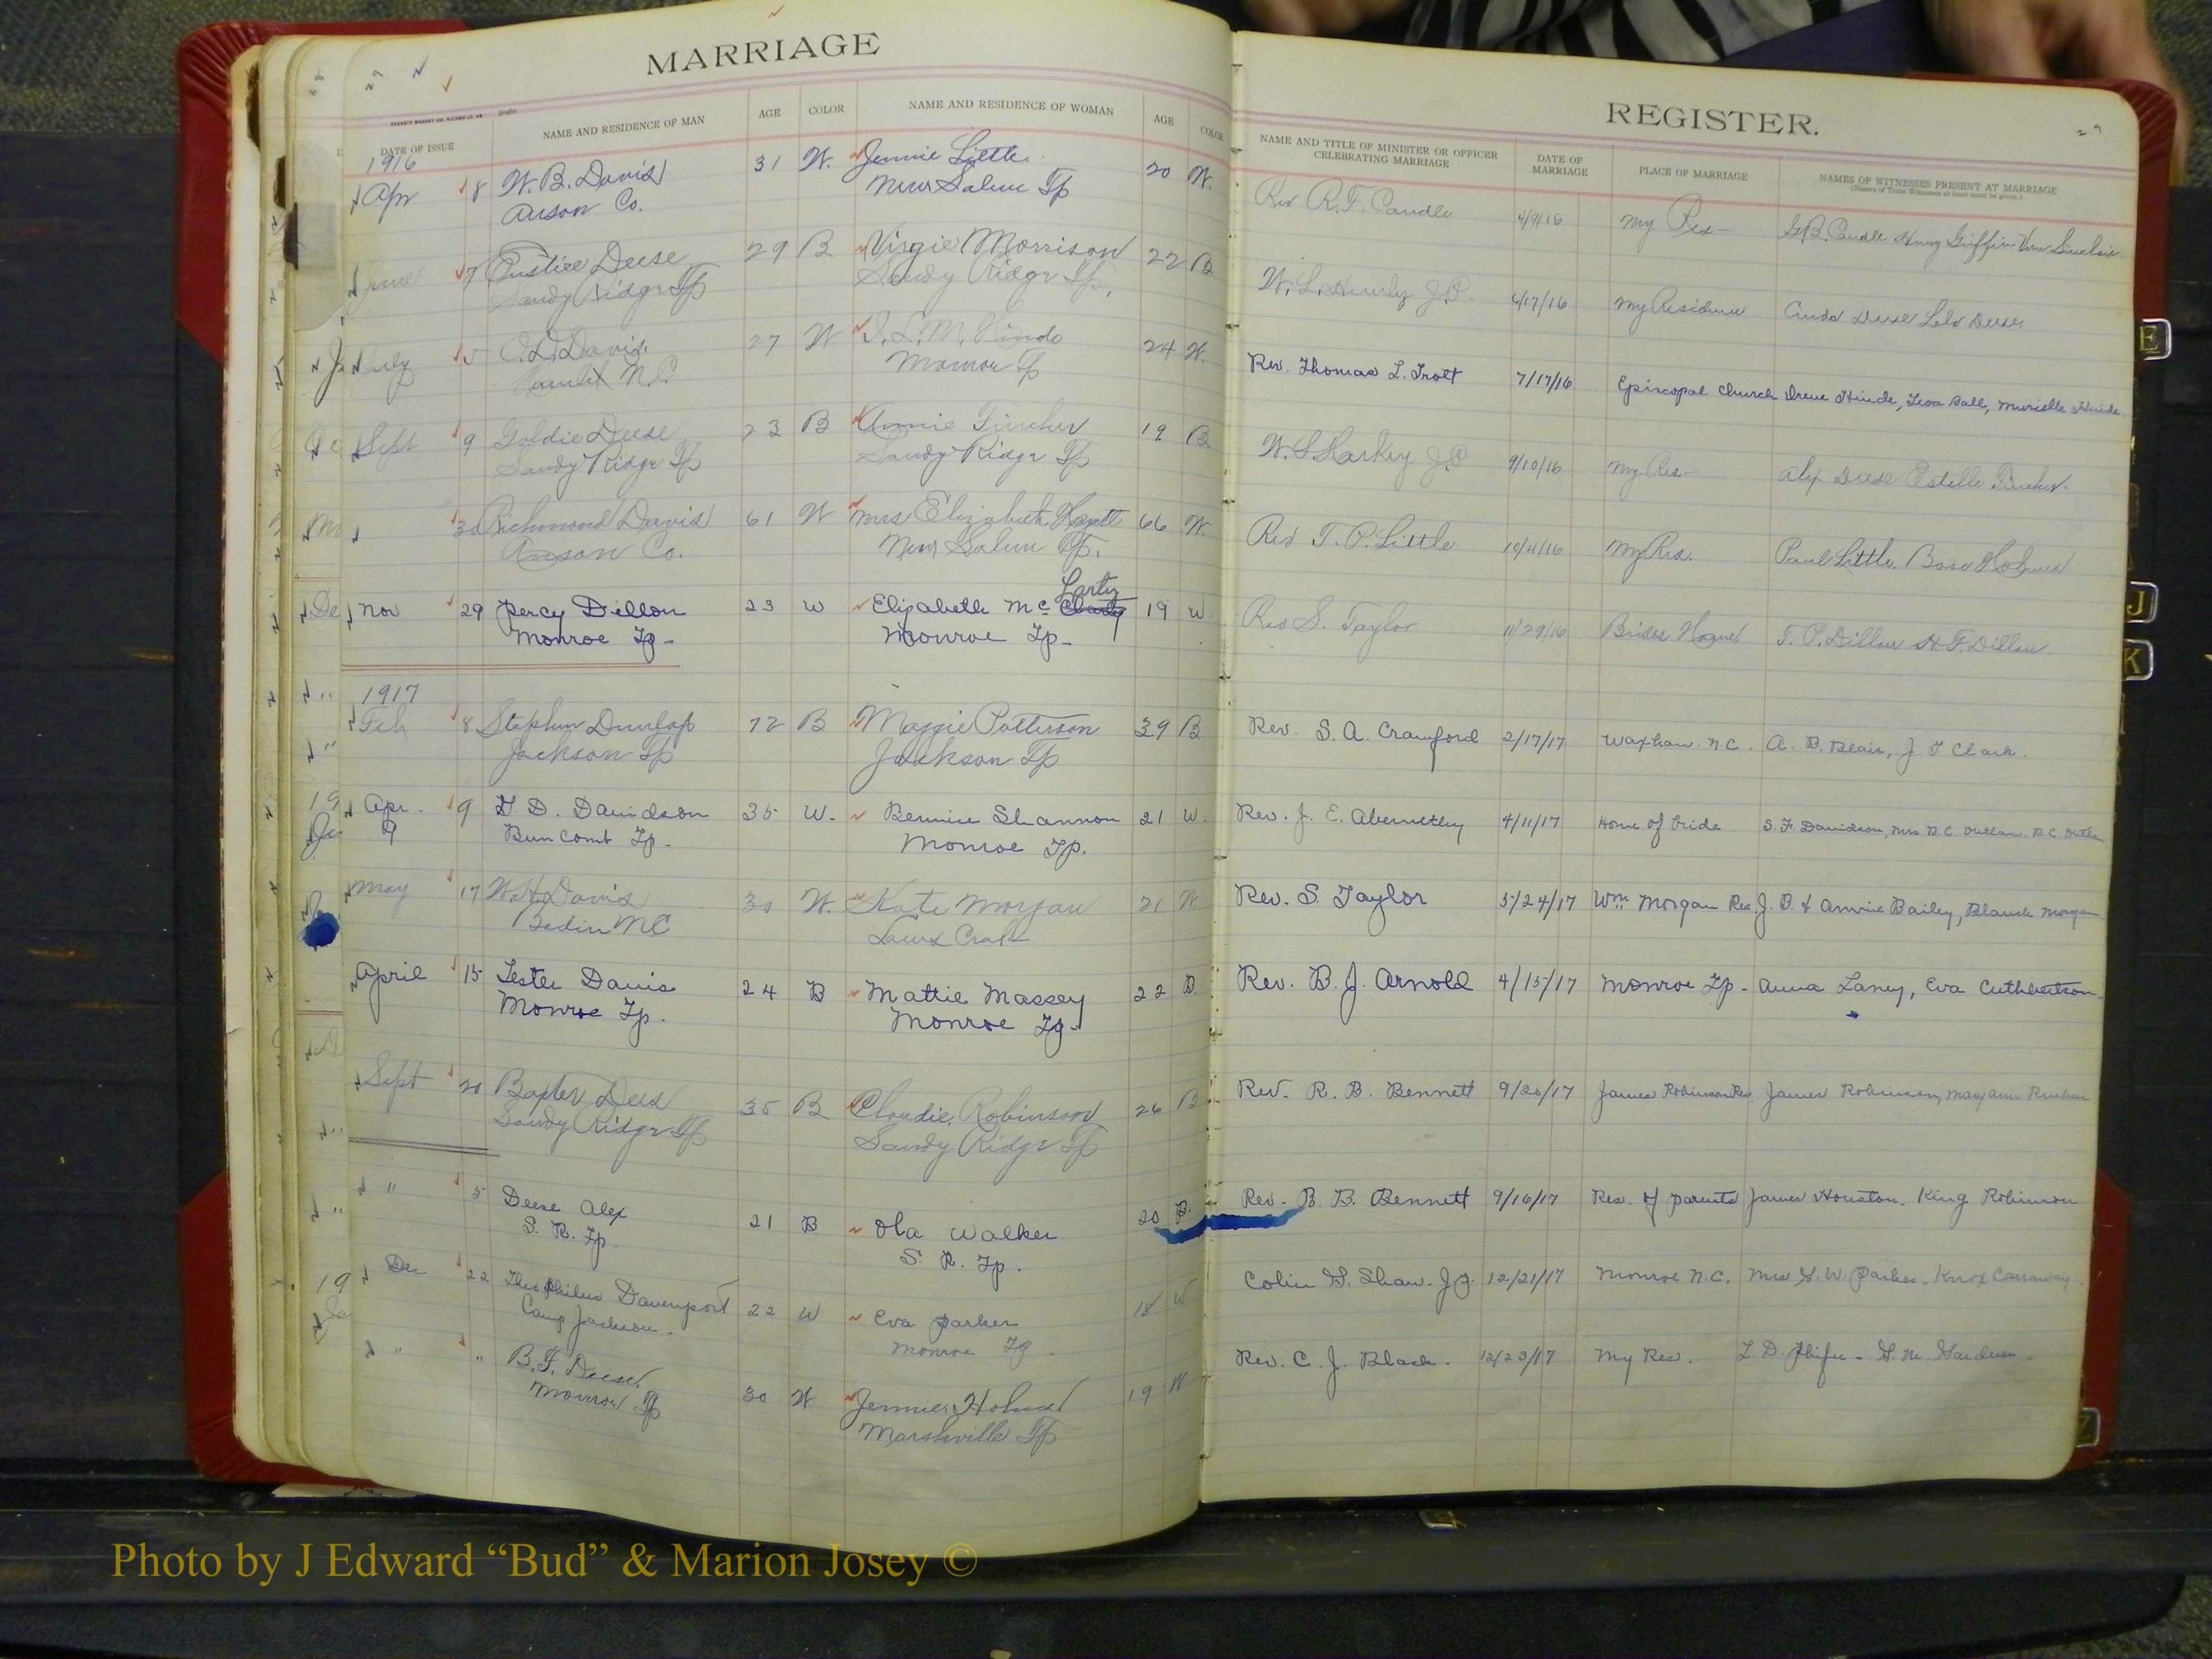 MARRIAGE
DATE OF ISSUE NAME AND RESIDENCE OF MAN AGE COLOR NAME AND RESIDENCE OF WOMAN AGE COLOR
1916
Apr 8 W. B. Davis 31 W. Jennie Little 20 W.
Anson Co. New Salem Tp
June 7 Eustice Deese 29 B Virgie Morrison 22 B
Sandy Ridge Tp Sandy Ridge Tp.
July 5 Davis 27 W 24 W.
N.C. Monroe Tp
Sept 9 Goldie Deese 23 B Annie Fincher 19 B
Sandy Ridge Tp Sandy Ridge Tp
30 Richmond Davis 61 W Mrs Elizabeth 66 W.
Anson Co. New Salem Tp.
Larty
Nov 29 Percy Dillon 23 W Elizabeth Mc 19 W
Monroe Tp- Monroe Tp-
1917
Feb 8 Stephen Dunlap 72 B Maggie Patterson 39 B
Jackson Tp Jackson Tp
Apr. 9 D. Davidson 35 W. Bennie Shannon 21 W.
9 Buncomb Tp. Monroe Tp.
May 17 W. H. Davis 30 W. Kate Morgan 21 W
Badin NC
April 15 Lester Davis 24 B Mattie Massey 22 B.
Monroe Tp. Monroe Tp-
Sept 20 Baxter Dees 35 B Claudie Robinson 26 B
Sandy Ridge Tp Sandy Ridge Tp
" 5 Deese Alex 21 B Ola Walker 20 B.
S. R. Tp. S. R. Tp.
Dec 22 Theophilus Davenport 22 W Eva Parker 18 W
Camp Jackson. Monroe Tp.
" " B. F. Deese 30 W Jennie 19 W
Monroe Tp Marshville Tp
REGISTER.
29
NAME AND TITLE OF MINISTER OR OFFICER CELEBRATING MARRIAGE DATE OF MARRIAGE PLACE OF MARRIAGE NAMES OF WITNESSES PRESENT AT MARRIAGE
(Names of Three Witnesses at least must be given.)
Rev R. F. Caudle 4/9/16 My Res- G. B. Caudle Griffin
W. L. J.P. 6/17/16 My Residence Deese Deese
Rev. Thomas L. Trott 7/17/16 Episcopal Church Irene Hinde, Ball, Murielle Hinde
W. S. Starkey J.P. 9/10/16 My Res- Alex Deese Estelle Fincher.
Rev T. P. Little 10/4/16 My Res. Paul Little.
Rev S. Taylor 11/29/16 Brides Home T. P. Dillon H. F. Dillon.
Rev. S. A. Crawford 2/17/17 Waxhaw. N.C. A. B. Blair, J. T. Clark.
Rev. J. E. Abernethy 4/11/17 Home of bride S. F. Davidson, Mrs B. C. Outlaw. B. C. Outlaw
Rev. S. Taylor 5/24/17 Wm Morgan Res J. B. & Annie Bailey, Blanch Morgan
Rev. B. J. Arnold 4/15/17 Monroe Tp- Anna Laney, Eva Cuthbertson.
Rev. R. B. Bennett 9/20/17 James Robinson Res. James Robinson, Mary Ann
Rev. B. B. Bennett 9/16/17 Res. of parents James Houston. King Robinson
Colin G. Shaw. J.P. 12/21/17 Monroe N.C. Mrs G. W. Parker. Knox Carraway.
Rev. C. J. Black. 12/23/17 My Res. L. D. Phifer -
E
J
K
Photo by J Edward “Bud” & Marion Josey ©